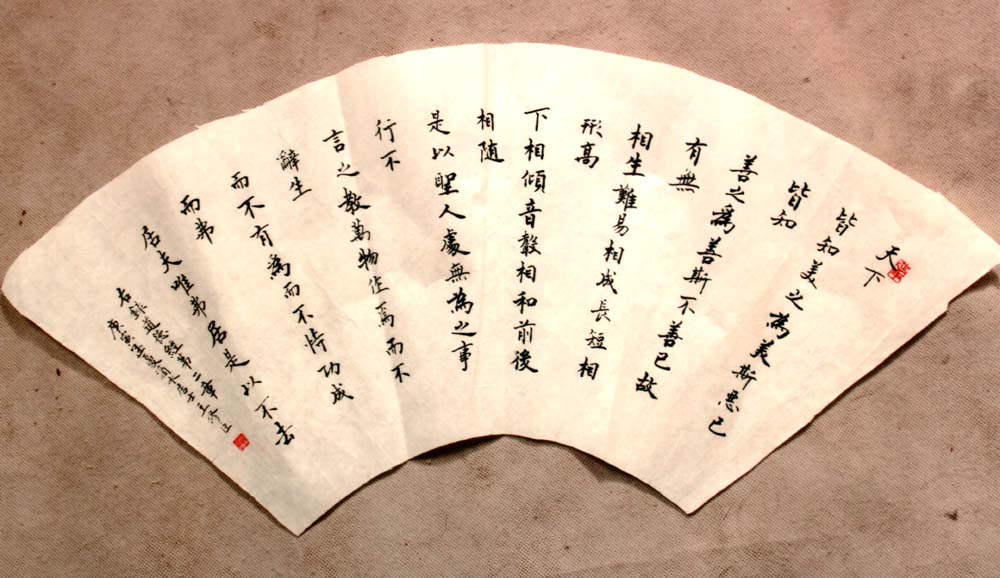 天下
皆知美之為美斯惡已
皆知
善之為善斯不善已故
有無
相生難易相成長短相
形高
下相傾音聲相和前後
相隨
是以聖人處無為之事
行不
言之教萬物作焉而不
辭生
而不有為而不恃功成
而弗
居夫唯弗居是以不去
右錄道德經第二章
庚寅夏居士王